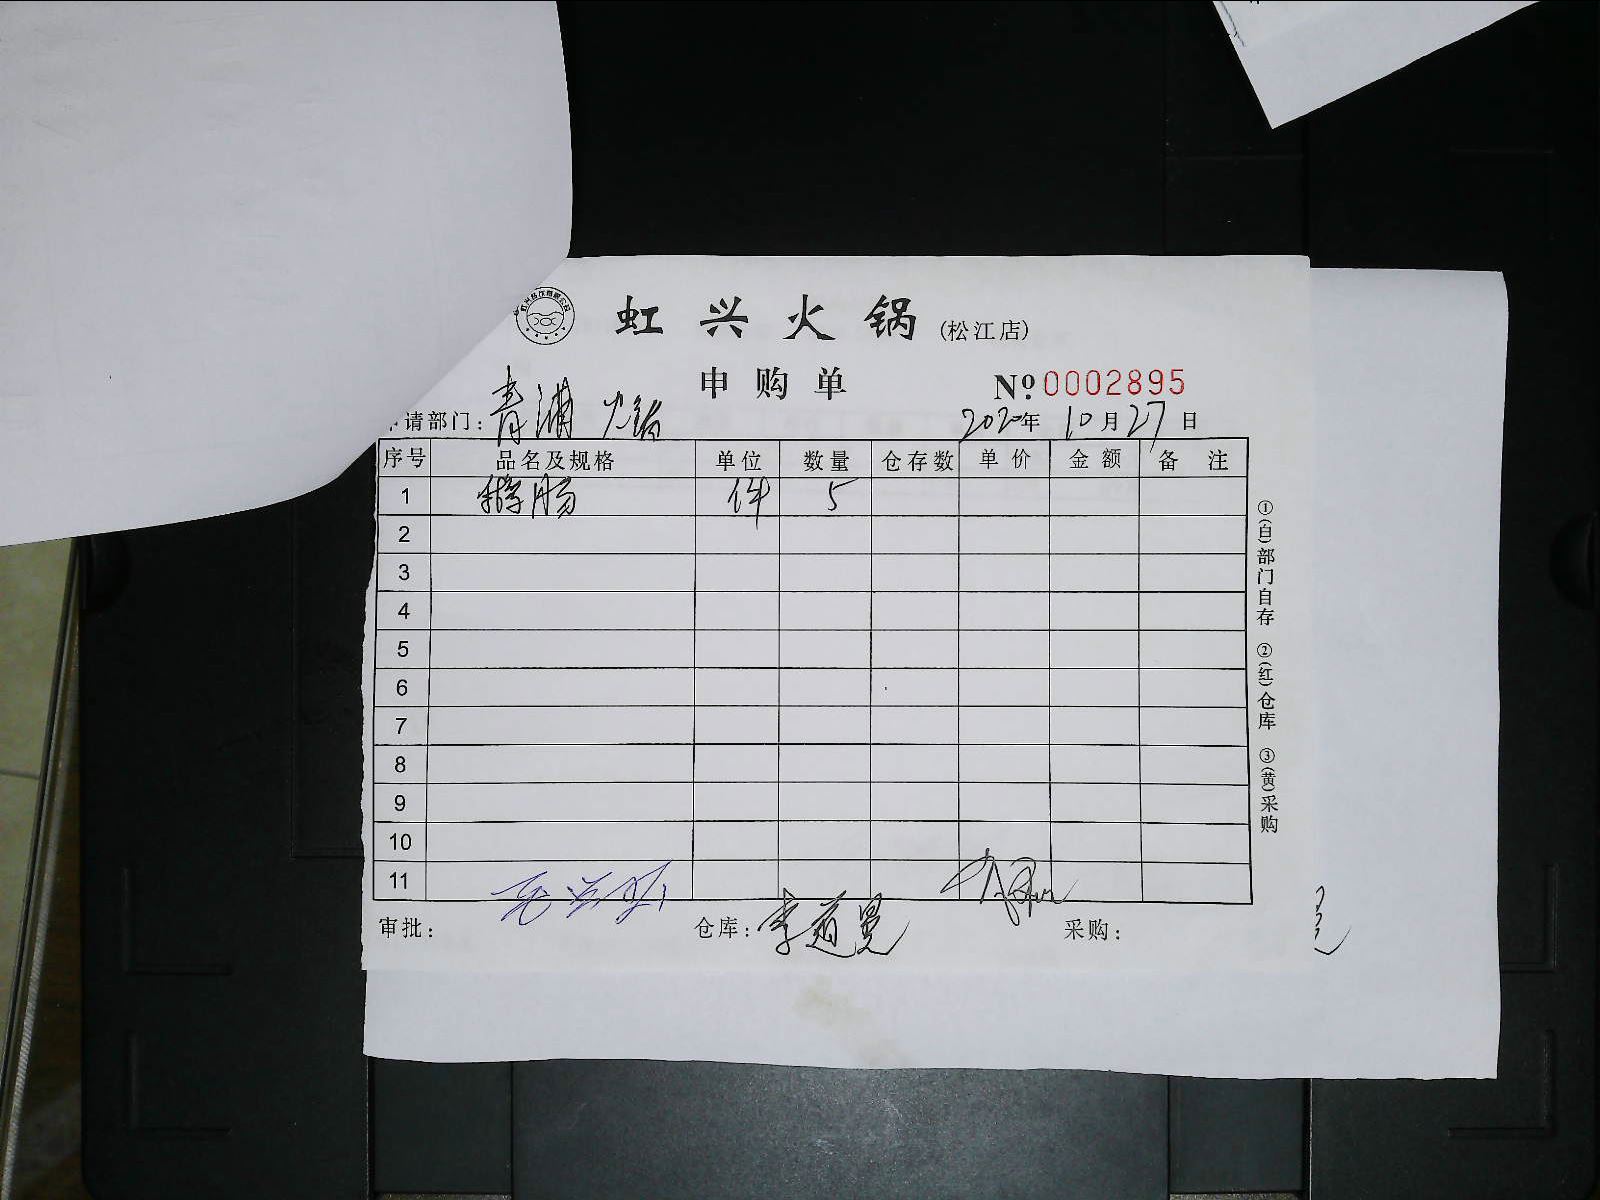 虹兴火锅(松江店)
申购单 №0002895
请部门: 青浦 火锅 2020年10月27日
序号 品名及规格 单位 数量 仓存数 单价 金额 备注
1 肠 件 5
2
3
4
5
6
7
8
9
10
11
审批: 仓库: 李道昃 采购:
①(白)部门自存 ②(红)仓库 ③(黄)采购